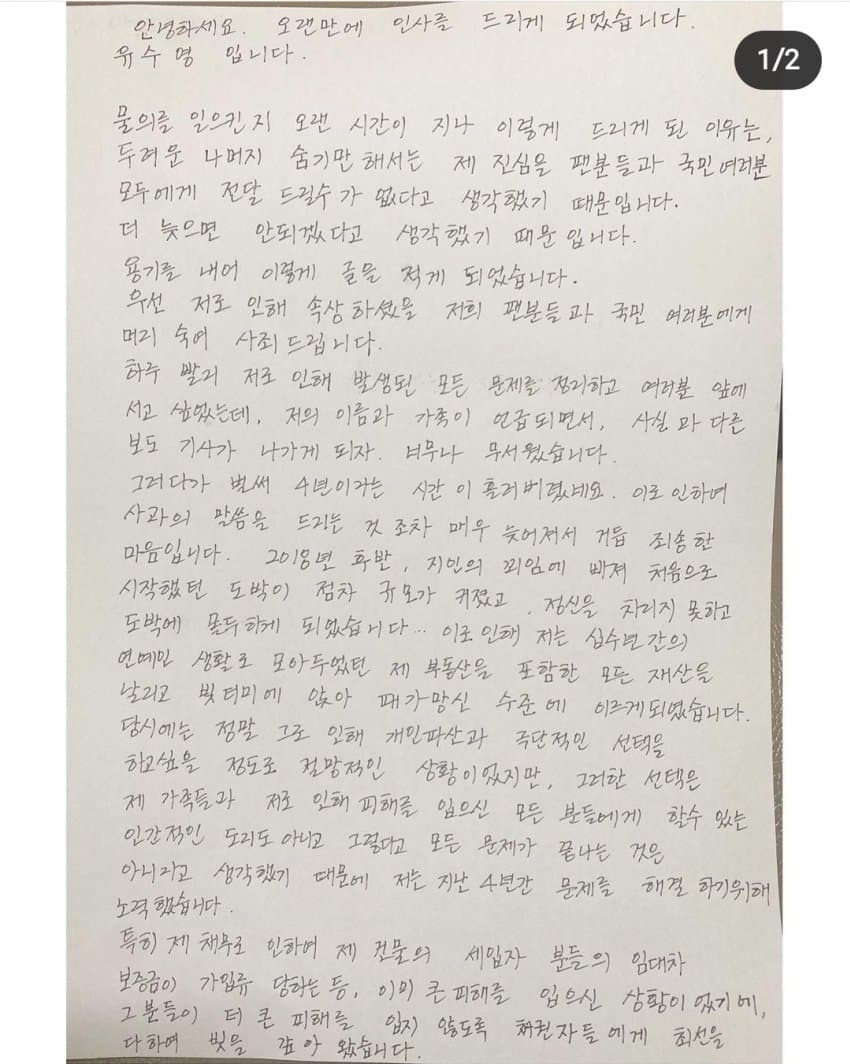 안녕하세요. 오랜만에 인사를 드리게 되었습니다.
유수영 입니다.
1/2
물의를 일으킨지 오랜 시간이 지나 이렇게 드리게 된 이유는,
두려운 나머지 숨기만 해서는 제 진심을 팬분들과 국민여러분
모두에게 전달 드릴수가 없다고 생각했기 때문입니다.
더 늦으면 안되겠다고 생각했기 때문입니다.
용기를 내어 이렇게 글을 적게 되었습니다.
우선 저로 인해 속상하셨을 저희 팬분들과 국민 여러분에게
머리 숙여 사죄드립니다.
하루 빨리 저로 인해 발생된 모든 문제를 정리하고 여러분 앞에
서고 싶었는데, 저의 이름과 가족이 언급되면서, 사실과 다른
보도 기사가 나가게 되자. 너무나 무서웠습니다.
그러다가 벌써 4년이라는 시간이 흘러버렸네요. 이로 인하여
사과의 말씀을 드리는 것 조차 매우 늦어져서 거듭 죄송한
마음입니다. 2018년 후반, 지인의 꾀임에 빠져 처음으로
시작했던 도박이 점차 규모가 커졌고, 정신을 차리지 못하고
도박에 몰두하게 되었습니다... 이로인해 저는 십수년간의
연예인 생활로 모아두었던 제 부동산을 포함한 모든 재산을
날리고 빚더미에 앉아 패가망신 수준에 이르게되었습니다.
당시에는 정말 그로 인해 개인파산과 극단적인 선택을
하고싶을 정도로 절망적인 상황이었지만, 그러한 선택은
제 가족들과 저로 인해 피해를 입으신 모든 분들에게 할수 있는
인간적인 도리도 아니고 그렇다고 모든 문제가 끝나는 것은
아니라고 생각했기 때문에 저는 지난 4년간 문제를 해결 하기위해
노력했습니다.
특히 제 채무로 인하여 제 건물의 세입자 분들의 임대차
보증금이 가압류 당하는 등, 이미 큰 피해를 입으신 상황이었기에,
그 분들이 더 큰 피해를 입지 않도록 채권자들에게 최선을
다하여 빚을 갚아 왔습니다.